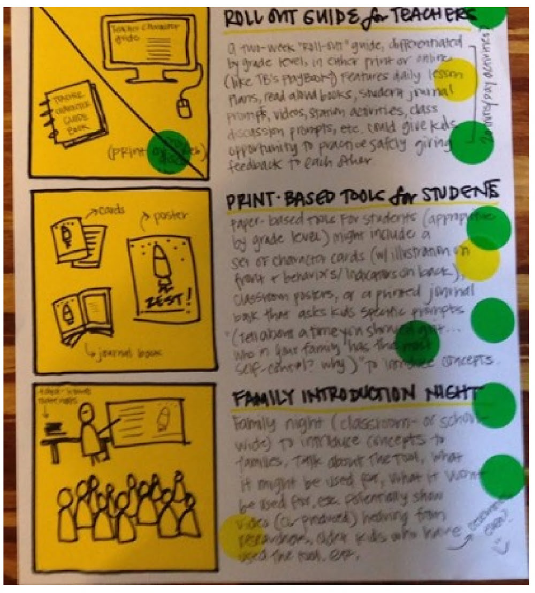 ROLL OUT GUIDE for TEACHERS
Teacher Character
guide
A two-week "roll-out" guide, differentiated
by grade level, in either print or online
(like TB's Playbook) features daily lesson
plans, read aloud books, student journal
prompts, videos, station activities, class
discussion prompts, etc. could give kids
opportunity to practice safely giving
feedback to each other.
TEACHER
CHARACTER
GUIDE
BOOK
(PRINT-
PRINT-BASED TOOLS for STUDENTS
cards
poster
ZEST!
journal book
Paper-based tools for students (appropriate
by grade level) might include a
set of character cards (w/ illustration on
front + behaviors/indicators on back),
classroom posters, or a printed journal
book that asks kids specific prompts
"(Tell about a time you showed
who in your family has the most
self-control? why)" to introduce concepts.
FAMILY INTRODUCTION NIGHT
Family night (classroom- or school
wide) to introduce concepts to
families, talk about the tool, what
it might be used for, what it won't
be used for, etc. Potentially show
video (co-produced) hearing from
researchers, older kids who have
used the tool, etc.